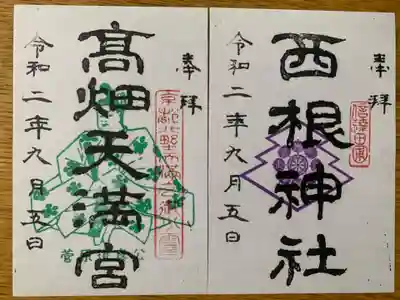 奉拝
西根神社
令和二年九月五日
奉拝
高畑天満宮
令和二年九月五日